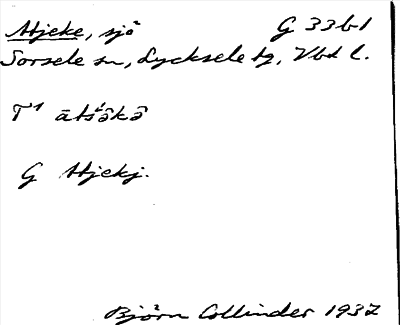 Atjeke, sjö G 33b1
Sorsele sn, Lycksele tg, Vbt l.
T¹ ātśəkə̂
G Atjekj.
Björn Collinder 1937